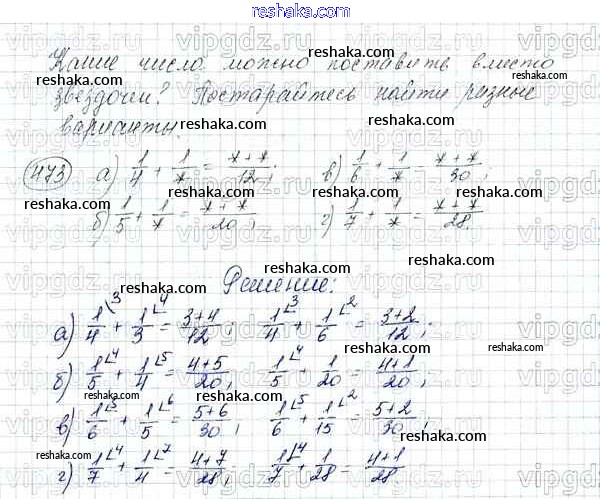 reshaka.com
Какие число можно поставить вместо
звездочки? Постарайтесь найти разные
варианты.
473 а) 1/4 + 1/* = (*+*)/12; в) 1/6 + 1/* = (*+*)/30;
б) 1/5 + 1/* = (*+*)/20; г) 1/7 + 1/* = (*+*)/28.
Решение:
а) 1/4 \3 + 1/3 \4 = (3+4)/12; 1/4 \3 + 1/6 \2 = (3+2)/12;
б) 1/5 \4 + 1/4 \5 = (4+5)/20; 1/5 \4 + 1/20 = (4+1)/20;
в) 1/6 \5 + 1/5 \6 = (5+6)/30; 1/6 \5 + 1/15 \2 = (5+2)/30;
г) 1/7 \4 + 1/4 \7 = (4+7)/28; 1/7 \4 + 1/28 = (4+1)/28
reshaka.com